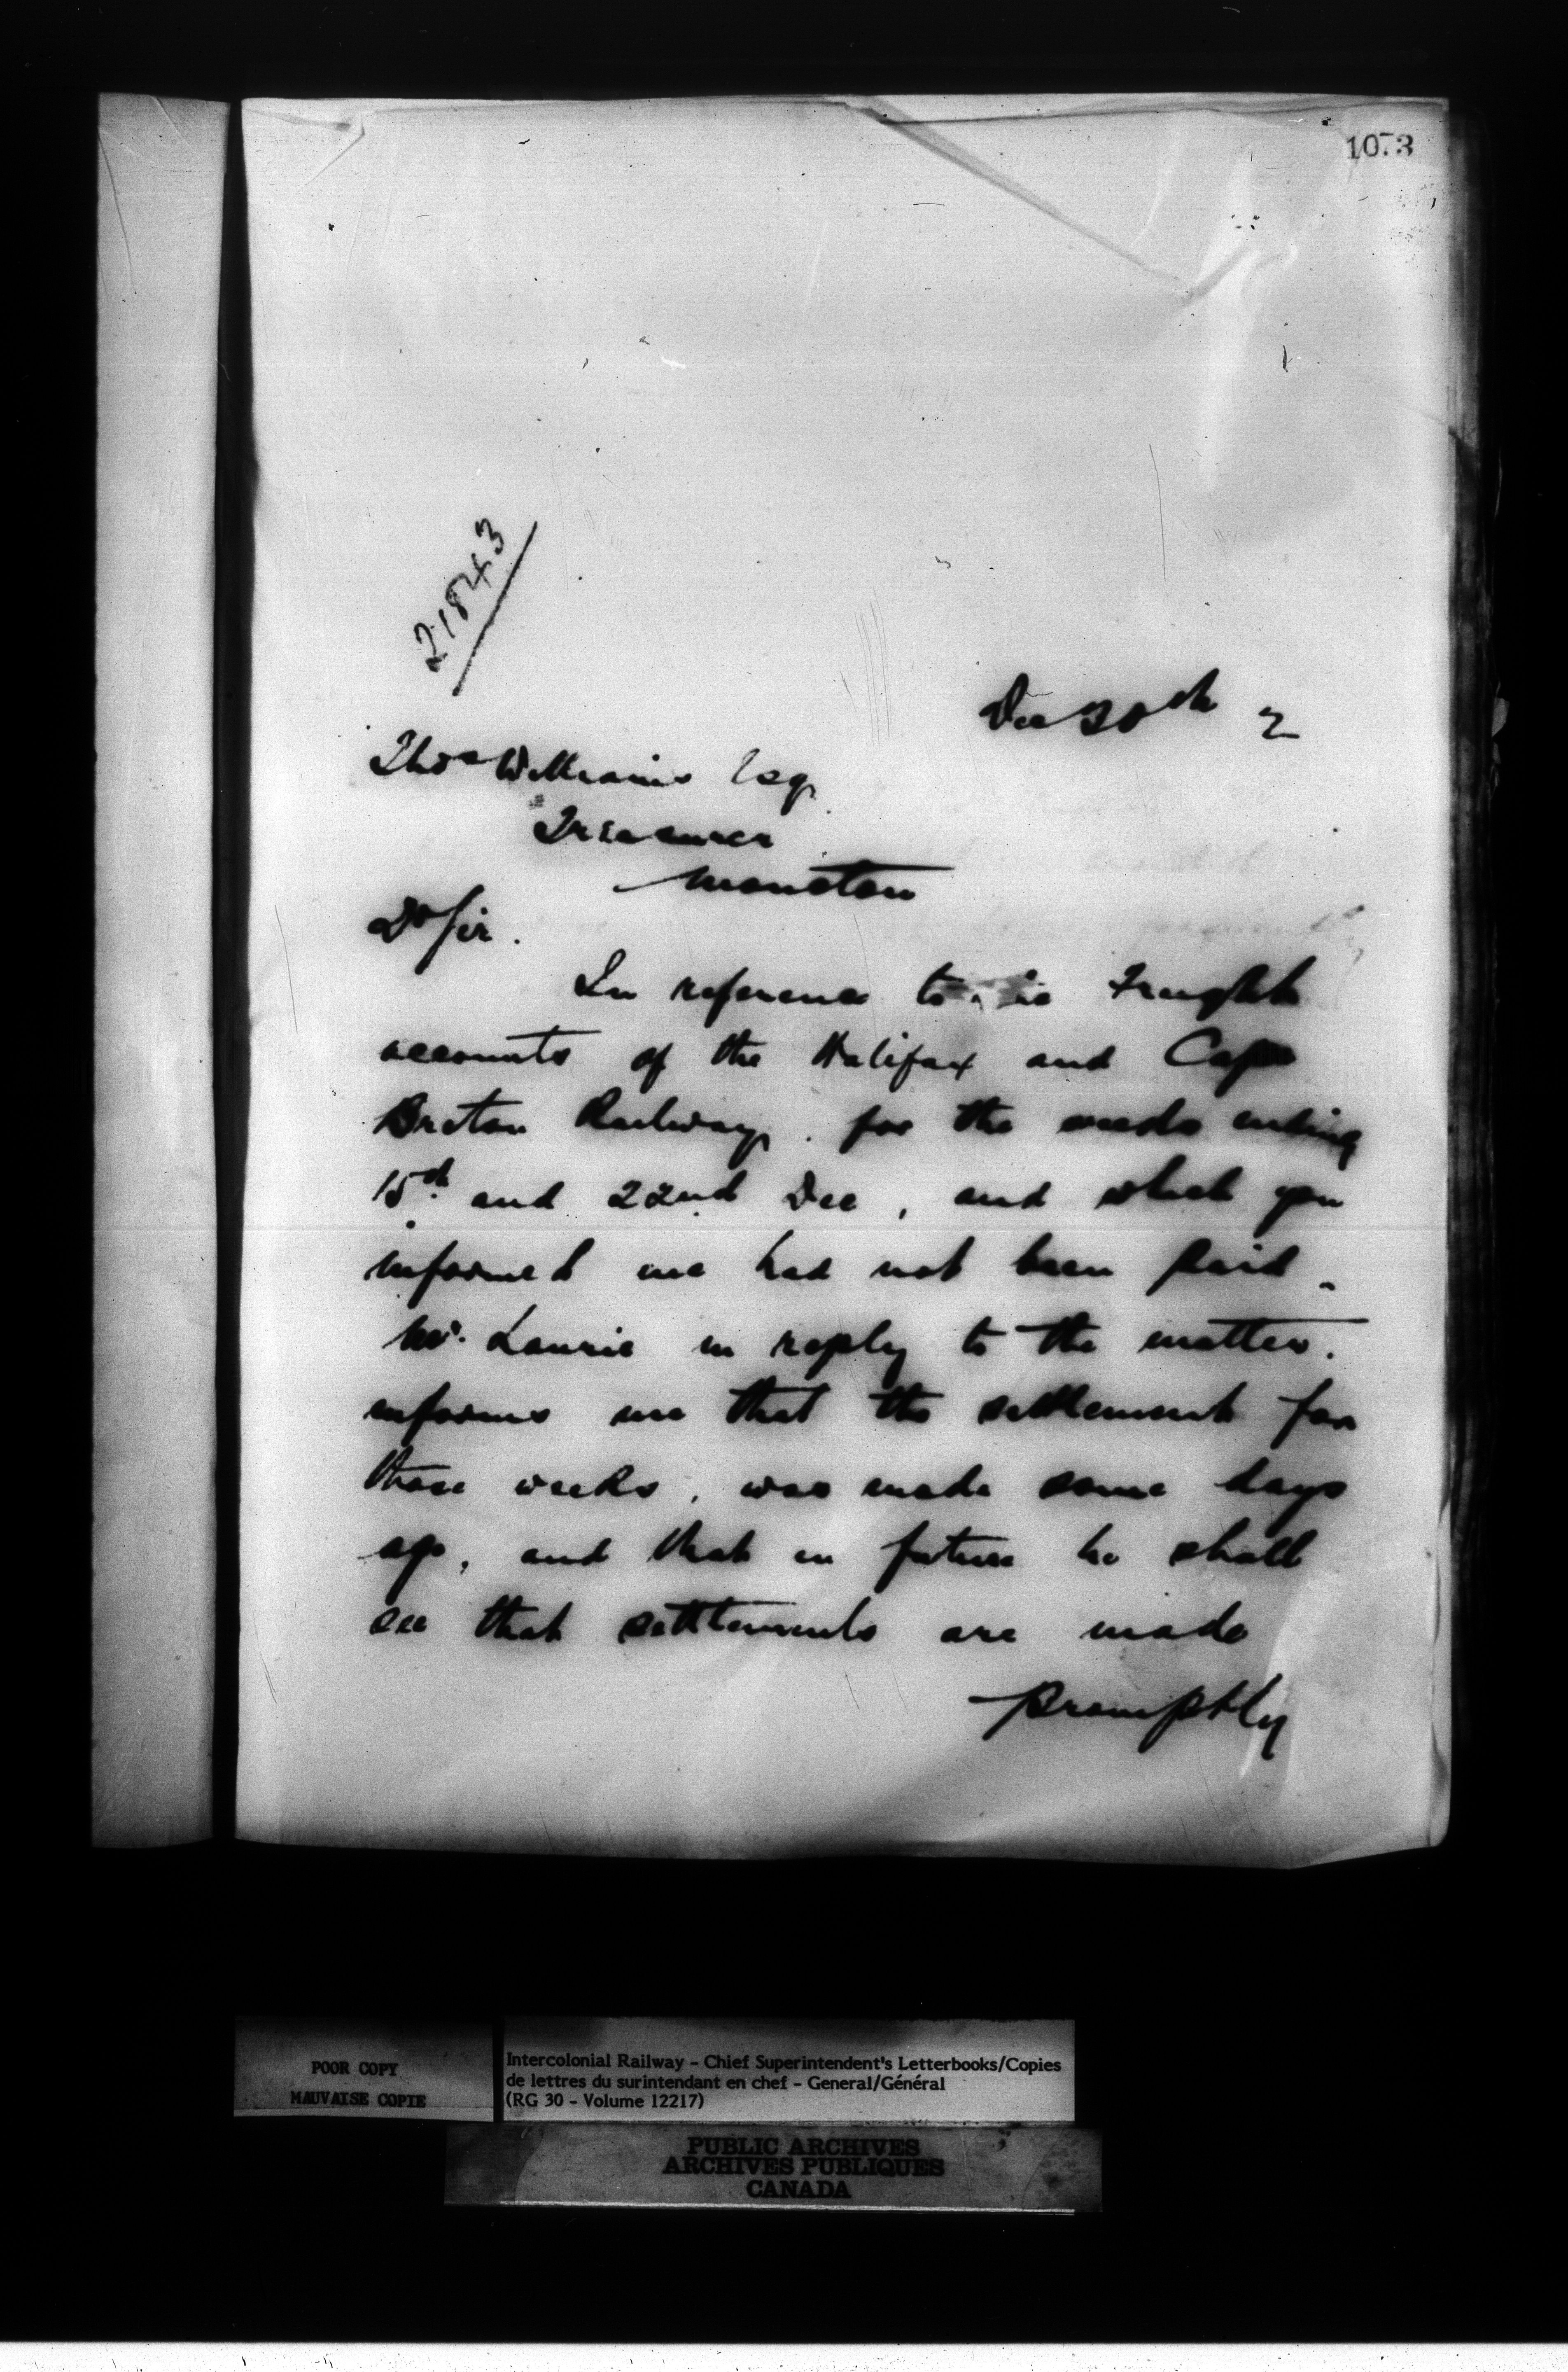 1073
21843
Dec 30th 2
Thos Williams Esq
Treasurer
Moncton
Dr Sir.
In reference to the Freight
accounts of the Halifax and Cape
Breton Railway. for the weeks ending
15th and 22nd Dec, and which you
informed me had not been paid.
Mr. Laurie in reply to the matter.
informs me that the settlement for
those weeks, was made some days
ago, and that in future he shall
see that settlements are made
promptly
POOR COPY
MAUVAISE COPIE
Intercolonial Railway - Chief Superintendent's Letterbooks/Copies
de lettres du surintendant en chef - General/Général
(RG 30 - Volume 12217)
PUBLIC ARCHIVES
ARCHIVES PUBLIQUES
CANADA